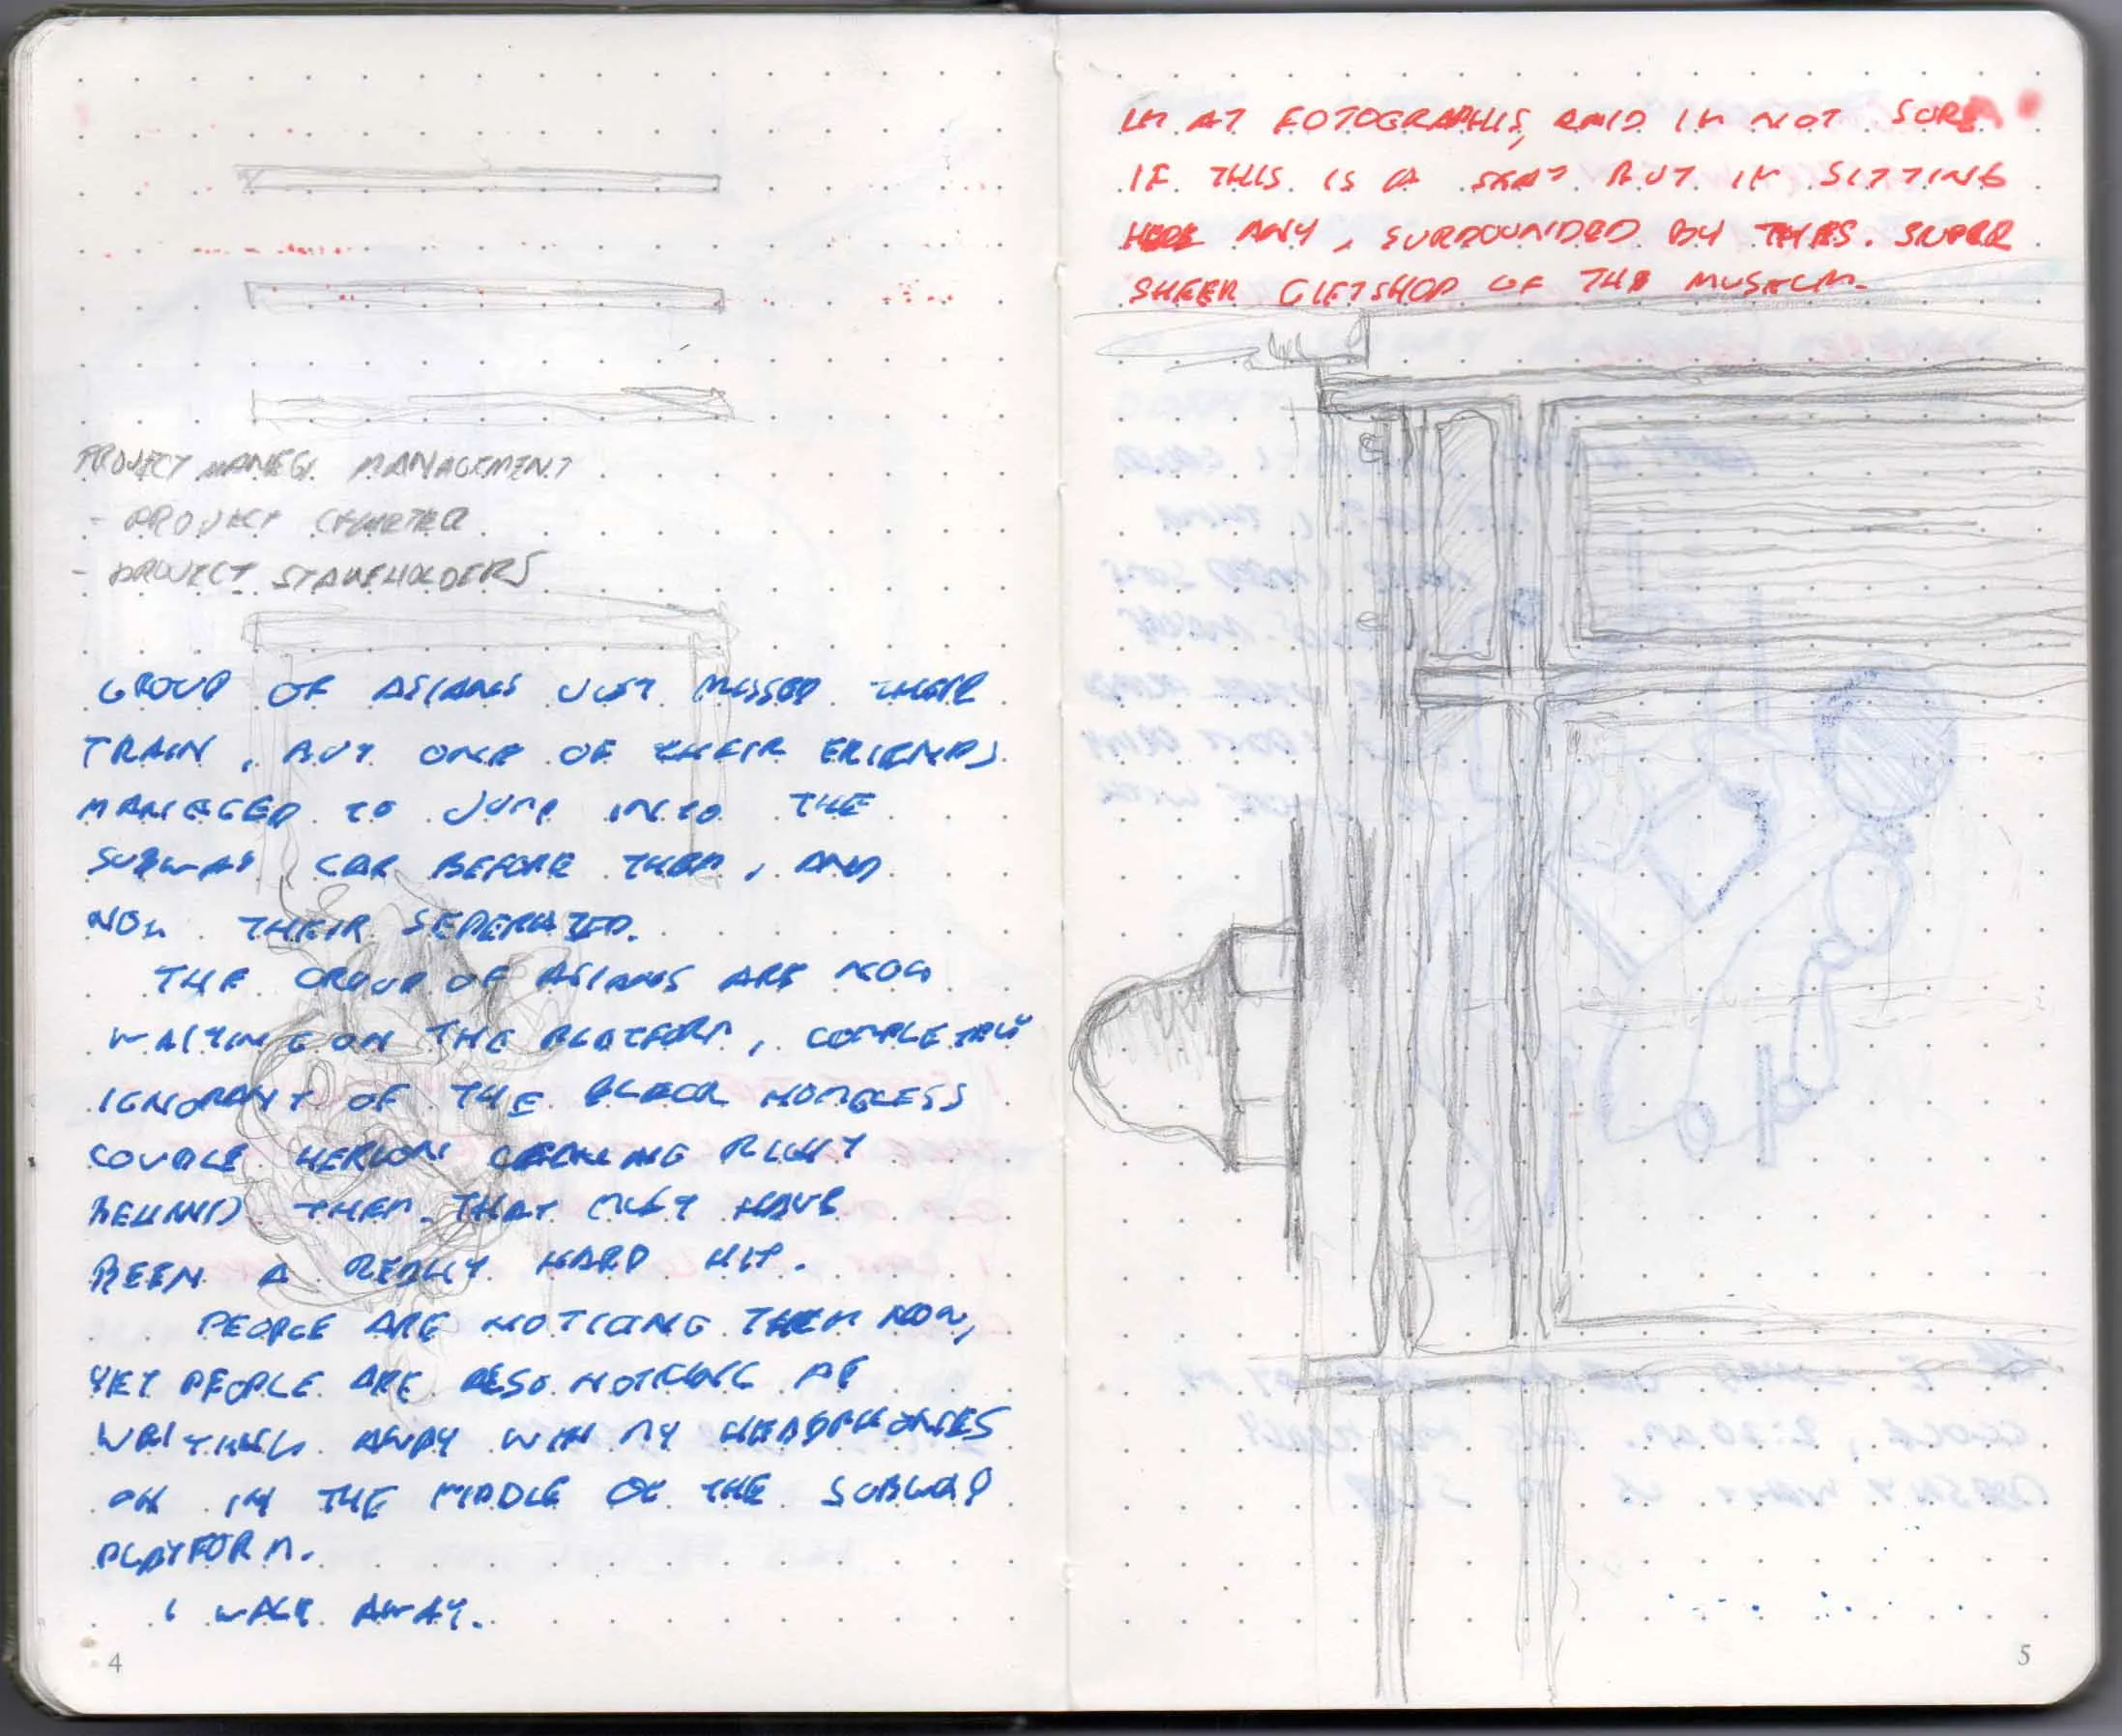 PROJECT MANEG. MANAGEMENT
- PROJECT CHARTER
- PROJECT STAKEHOLDERS
GROUP OF ASIANS JUST MISSED THEIR
TRAIN, BUT ONE OF THEIR FRIENDS
MANEGED TO JUMP INTO THE
SUBWAY CAR BEFORE THEM, AND
NOW THEIR SEPERATED.
THE GROUP OF ASIANS ARE NOW
WAITING ON THE PLATFORM, COMPLETELY
IGNORANT OF THE BLACK HOMELESS
COUPLE RIGHT
BEHIND THEM. THAT MUST HAVE
BEEN A REALLY HARD HIT.
PEOPLE ARE NOTICING THEM NOW,
YET PEOPLE ARE ALSO NOTICING ME
WRITING AWAY WITH MY HEADPHONES
ON IN THE MIDDLE OF THE SUBWAY
PLATFORM.
I WALK AWAY.
4
IM AT FOTOGRAPHIS, AND IM NOT SURE
IF THIS IS A SEAT BUT IM SITTING
ANY, SURROUNDED BY THIS SUPER
SHEER GIFTSHOP OF THE MUSEUM.
5